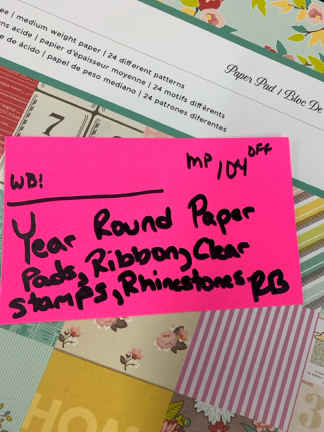 ee | medium weight paper | 24 different patterns
ns ácide | papier d'épaisseur moyenne | 24 motifs différents
de ácido | papel de peso mediano | 24 patrones diferentes
Paper Pad | Bloc De
7
MP 104 OFF
WB!
Year Round Paper
Pads, Ribbon, Clear
Stamps, Rhinestones RB
HOM
3